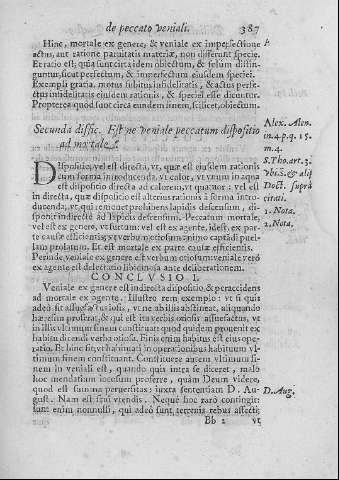 de peccato veniali. 387
Hinc, mortale ex genere, & veniale ex imperfectione
actus, aut ratione paruitatis materiæ, non differunt specie.
Et ratio est; quia sunt circa idem obiectum, & solùm distin-
guntur, sicut perfectum, & imperfectum eiusdem speciei.
Exempli gratia, motus subitus infidelitatis, & actus perfe-
ctus infidelitatis eiusdem rationis, & speciei esse dicuntur.
Propterea quòd sunt circa eundem finem, scilicet, obiectum.
Secunda diffic. Est ne veniale peccatum dispositio
ad mortale?
Alex. Alen.
in. 4. p. q. 15.
m. 4.
S. Tho. art. 3.
Vbi s. & alij
Doct. suprà
citati.
1. Nota.
2. Nota.
Dispositio, vel est directa, vt, quæ est eiusdem rationis
cum forma introducenda, vt calor, vt vnum in aqua
est dispositio directa ad calorem, vt quatuor: vel est
in directa, quæ dispositio est alterius rationis à forma intro-
ducenda; vt, qui remouet prohibens lapidis descensum, dis-
ponit indirectè ad lapidis descensum. Peccatum mortale,
vel est ex genere, vt furtum: vel est ex agente, idest, ex par-
te causæ efficientis; vt verbum otiosum animo captādi puel-
lam prolatum. Et est mortale ex parte causæ efficientis.
Perinde veniale ex genere est verbum otiosum: veniale verò
ex agente est delectatio libidinosa ante deliberationem.
CONCLVSIO I.
Veniale ex genere est indirecta dispositio, & per accidens
ad mortale ex agente. Illustro rem exemplo: vt si quis
adeò sit vt ne ab illis abstineat, aliquando
hæresim proferat, & qui est ita verbis otiosis assuefactus, vt
in illis vltimum finem constituat: quod quidem prouenit ex
habitu dicendi verba otiosa. Finis enim habitus est eius ope-
ratio. Et hinc sit, vt habituati in operationibus habituum vl-
timum finem constituant. Constituere autem vltimum fi-
nem in veniali est, quando quis intra se diceret, malo
hoc mendatium iocosum proferre, quàm Deum videre,
quod est summa peruersitas: iuxta sententiam D. Au-
gust. Nam est frui vtendis. Neque hoc raro contingit:
sunt enim nonnulli, qui adeò sunt terrenis rebus affecti;
D. Aug.
Bb 2 vt